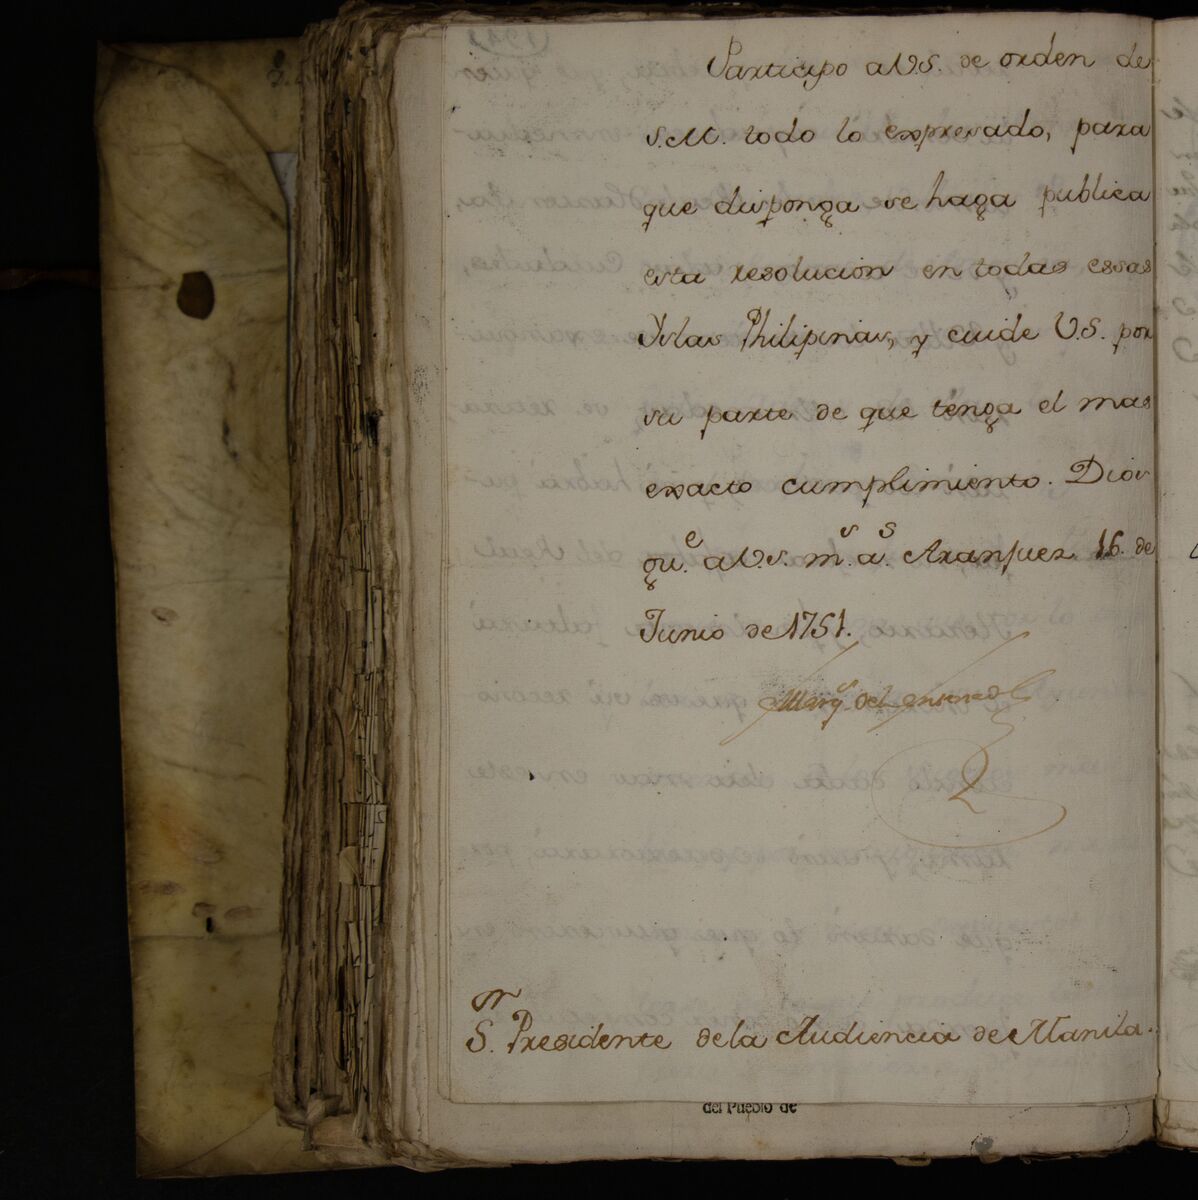 Participo a V.S. de orden de
S.M. todo lo expresado, para
que disponga se haga publica
esta resolucion en todas essas
Yslas Philipinas, y cuide V.S. por
su parte de que tenga el mas
exacto cumplimiento. Dios
gu.e a V.S. m.s a.s Aranjuez 16. de
Junio de 1751.
Marq.s de la Ensenada
S.or Presidente de la Audiencia de Manila.
del Pueblo de